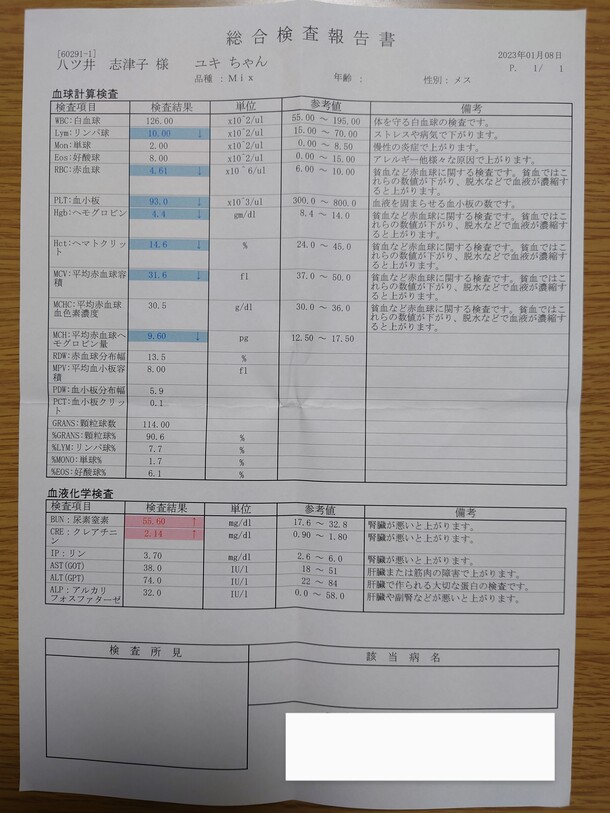 総合検査報告書
[60291-1]
八ツ井 志津子 様 ユキ ちゃん
2023年01月08日
P. 1/ 1
品種 : Mix 年齢 : 性別 : メス
血球計算検査
検査項目 検査結果 単位 参考値 備考
WBC:白血球 126.00 x10ˆ2/ul 55.00 ~ 195.00 体を守る白血球の検査です。
Lym:リンパ球 10.00 ↓ x10ˆ2/ul 15.00 ~ 70.00 ストレスや病気で下がります。
Mon:単球 2.00 x10ˆ2/ul 0.00 ~ 8.50 慢性の炎症で上がります。
Eos:好酸球 8.00 x10ˆ2/ul 0.00 ~ 15.00 アレルギー他様々な原因で上がります。
RBC:赤血球 4.61 ↓ x10ˆ6/ul 6.00 ~ 10.00 貧血など赤血球に関する検査です。貧血ではこ
れらの数値が下がり、脱水などで血液が濃縮す
ると上がります。
PLT:血小板 93.0 ↓ x10ˆ3/ul 300.0 ~ 800.0 血液を固まらせる血小板の数です。
Hgb:ヘモグロビン 4.4 ↓ gm/dl 8.4 ~ 14.0 貧血など赤血球に関する検査です。貧血ではこ
れらの数値が下がり、脱水などで血液が濃縮す
ると上がります。
Hct:ヘマトクリッ
ト 14.6 ↓ % 24.0 ~ 45.0 貧血など赤血球に関する検査です。貧血ではこ
れらの数値が下がり、脱水などで血液が濃縮す
ると上がります。
MCV:平均赤血球容
積 31.6 ↓ fl 37.0 ~ 50.0 貧血など赤血球に関する検査です。貧血ではこ
れらの数値が下がり、脱水などで血液が濃縮す
ると上がります。
MCHC:平均赤血球
血色素濃度 30.5 g/dl 30.0 ~ 36.0 貧血など赤血球に関する検査です。貧血ではこ
れらの数値が下がり、脱水などで血液が濃縮す
ると上がります。
MCH:平均赤血球ヘ
モグロビン量 9.60 ↓ pg 12.50 ~ 17.50
RDW:赤血球分布幅 13.5 %
MPV:平均血小板容
積 8.00 fl
PDW:血小板分布幅 5.9
PCT:血小板クリッ
ト 0.1
GRANS:顆粒球数 114.00
%GRANS:顆粒球% 90.6 %
%LYM:リンパ球% 7.7 %
%MONO:単球% 1.7 %
%EOS:好酸球% 6.1 %
血液化学検査
検査項目 検査結果 単位 参考値 備考
BUN:尿素窒素 55.60 ↑ mg/dl 17.6 ~ 32.8 腎臓が悪いと上がります。
CRE:クレアチニ
ン 2.14 ↑ mg/dl 0.90 ~ 1.80 腎臓が悪いと上がります。
IP:リン 3.70 mg/dl 2.6 ~ 6.0 腎臓が悪いと上がります。
AST(GOT) 38.0 IU/l 18 ~ 51 肝臓または筋肉の障害で上がります。
ALT(GPT) 74.0 IU/l 22 ~ 84 肝臓で作られる大切な蛋白の検査です。
ALP:アルカリ
フォスファターゼ 32.0 IU/l 0.0 ~ 58.0 肝臓や副腎などが悪いと上がります。
検査所見 該当病名